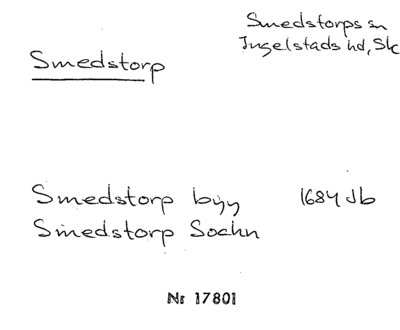 Smedstorps sn
Ingelstads hd, Sk
Smedstorp
Smedstorp byy 1684 Jb
Smedstorp Sochn
Nr 17801